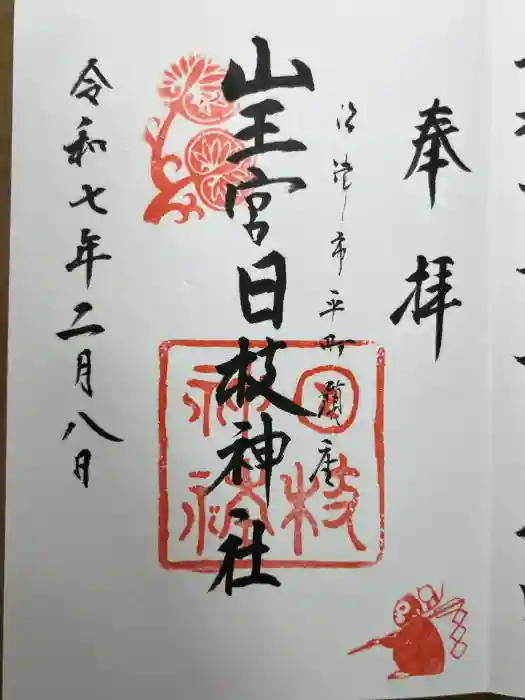 奉拝
沼津市平町鎮座
山王宮日枝神社
日枝神社
令和七年二月八日